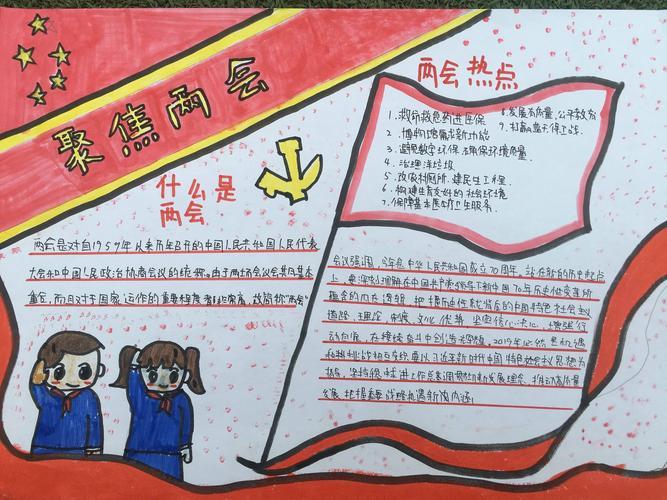 聚焦两会
什么是
两会
两会是对自1959年以来历年召开的中国人民共和国人民代表
大会和中国人民政治协商会议的统称。由于两场会议会期基本
重合,而且对于国家运作的重要程度都非常高,故简称“两会”
两会热点
1.救命救急药进医保
2.博物馆需求新功能
3.避免数字环保 确保环境质量.
4.治理洋垃圾
5.改厕
建民生工程.
6.构建生育友好的社会环境
7.保障基本医疗卫生服务.
8.发展高质量,公平教育
9.打赢蓝天保卫战.
会议强调,今年是中华人民共和国成立70周年,站在新的历史起点
上,要深刻理解在中国共产党领导下新中国70年历史性变革所
蕴含的内在逻辑,把握历史性成就背后的中国特色社会主义
道路、理论、制度、文化优势,坚定信心决心,增强行
动自觉,在接续奋斗中创造
2019年
机遇
和挑战
要以习近平新时代中国特色社会主义思想为
指导,坚持稳中求进工作总基调
新发展理念,推动高质量
发展
把握重要战略机遇新内涵